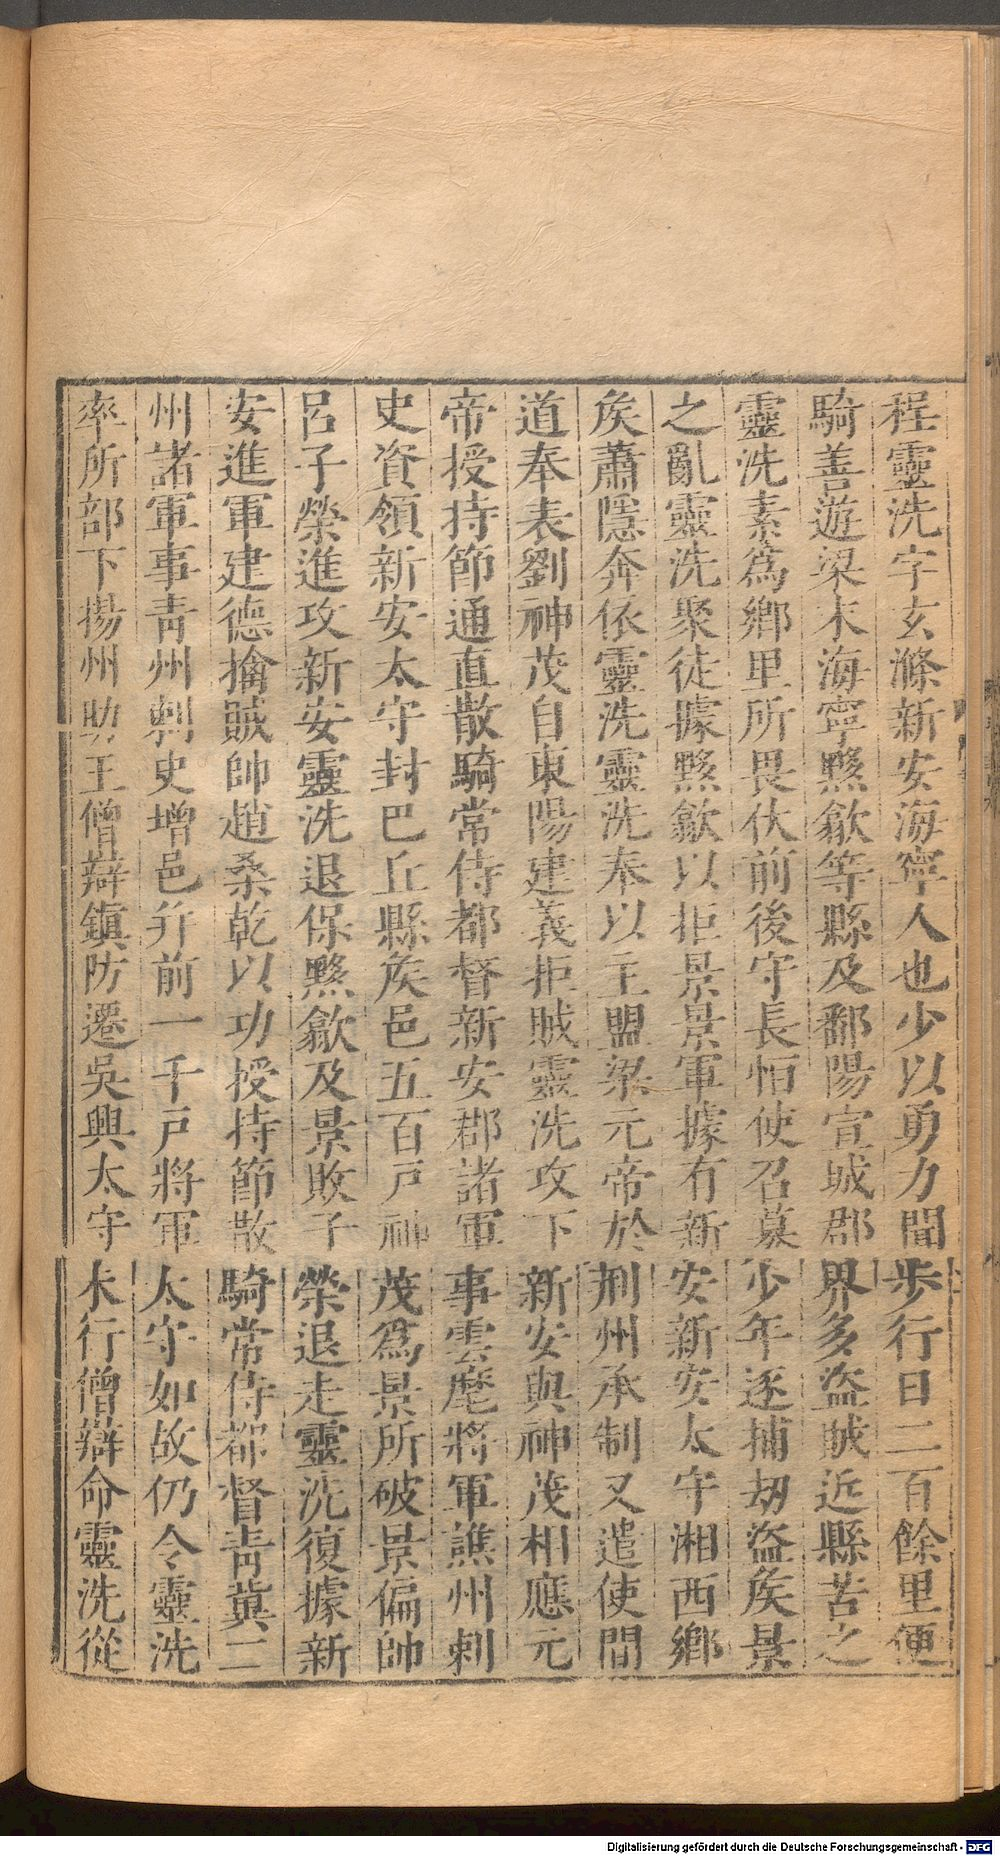 程靈洗字玄滌新安海寧人也少以勇力聞步行日二百餘里便
騎善遊梁末海寧黟歙等縣及鄱陽宣城郡界多盜賊近縣苦之
靈洗素爲鄉里所畏伏前後守長怕使召募少年逐捕刼盜矦景
之亂靈洗聚徒據黟歙以拒景景軍據有新安新安太守湘西鄉
矦蕭隱奔依靈洗靈洗奉以主盟梁元帝於荆州承制又遣使間
道奉表劉神茂自東陽建義拒賊靈洗攻下新安與神茂相應元
帝授持節通直散騎常侍都督新安郡諸軍事雲麾將軍譙州刺
史資領新安太守封巴丘縣矦邑五百戸神茂爲景所破景偏帥
呂子榮進攻新安靈洗退保黟歙及景敗子榮退走靈洗復據新
安進軍建德擒賊帥趙桑乾以功授持節散騎常侍都督青冀二
州諸軍事青州刺史增邑并前一千戸將軍太守如故仍令靈洗
率所部下揚州助王僧辯鎮防遷吳興太守未行僧辯命靈洗從
Digitalisierung gefördert durch die Deutsche Forschungsgemeinschaft - DFG